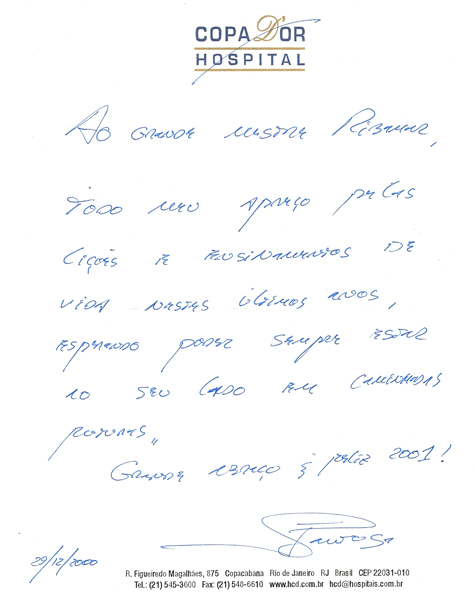 COPA D'OR
HOSPITAL
Ao grande mestre Ribamar,
Todo meu apreço pelas
lições e ensinamentos de
vida nestes últimos anos,
esperando poder sempre estar
ao seu lado em caminhadas
futuras,,
Grande abraço e feliz 2001!
29/12/2000
R. Figueiredo Magalhães, 875 Copacabana Rio de Janeiro RJ Brasil CEP 22031-010
Tel.: (21) 545-3600 Fax: (21) 548-6610 www.hcd.com.br hcd@hospitais.com.br